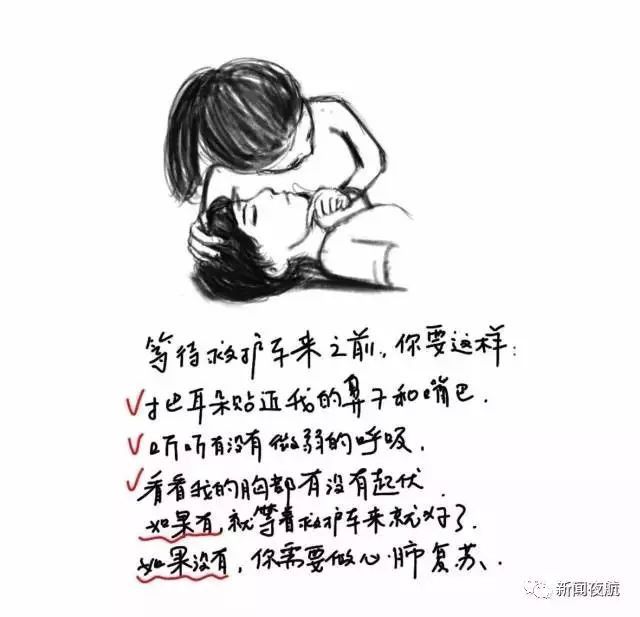 等待救护车来之前，你要这样：
✓把耳朵贴近我的鼻子和嘴巴.
✓听听有没有微弱的呼吸.
✓看看我的胸部有没有起伏
如果有,就等着救护车来就好了.
如果没有,你需要做心肺复苏.
新闻夜航